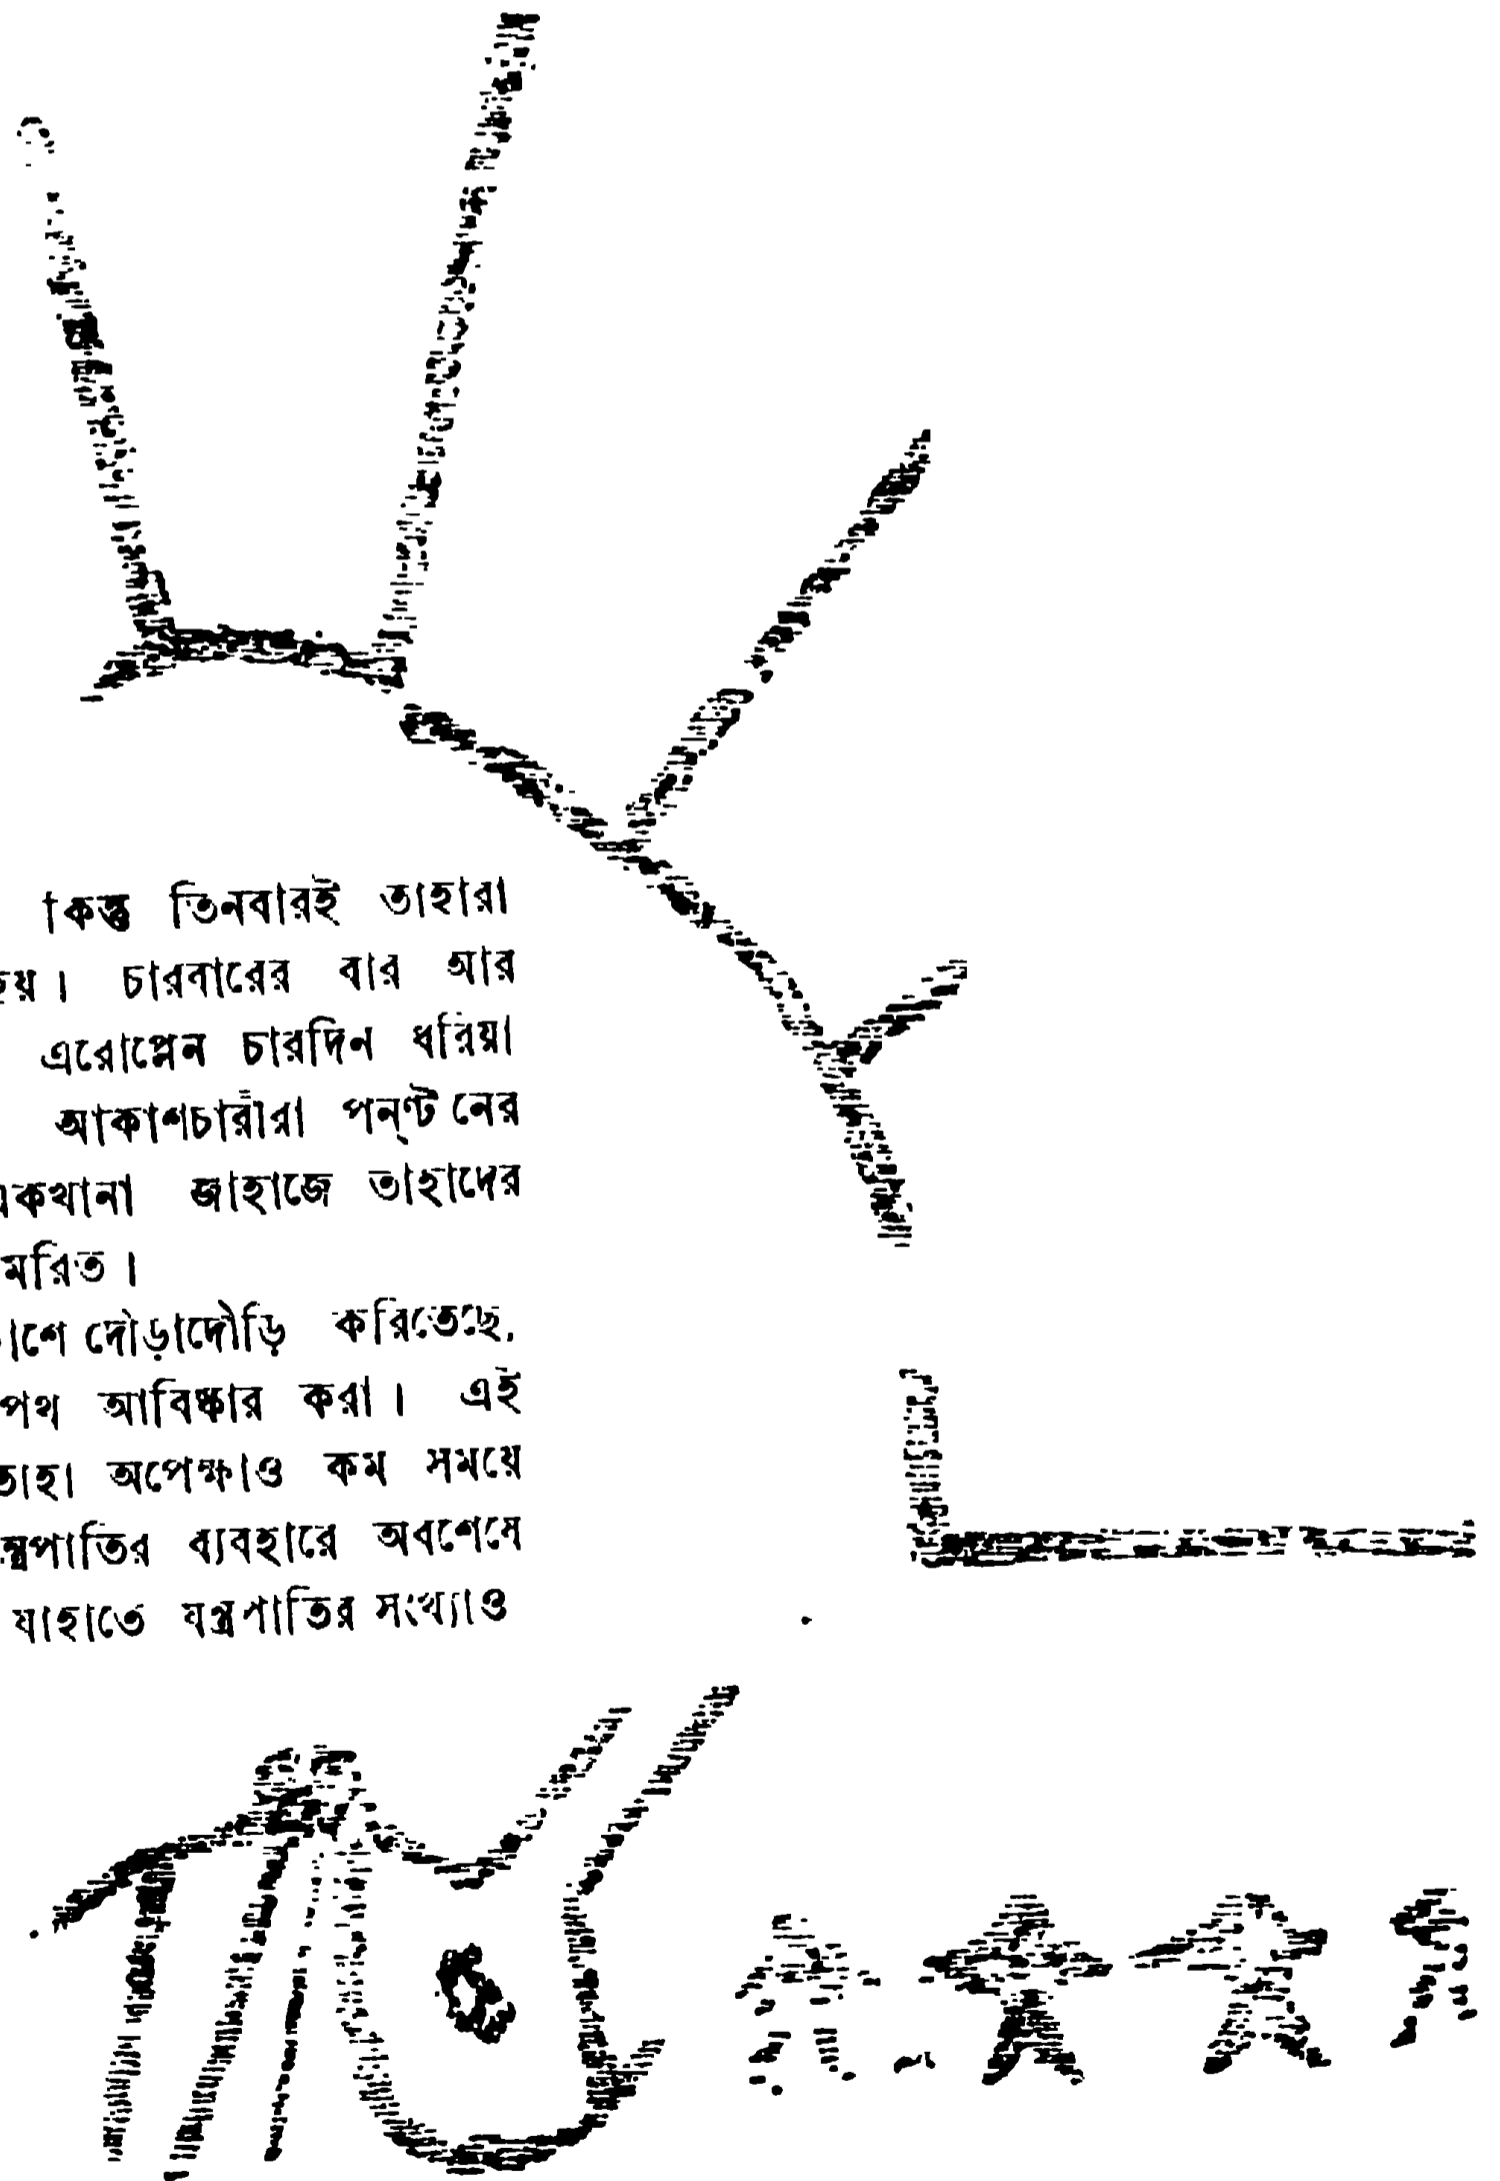 কিন্তু তিনবারই তাহারা
হয়। চারবারের বার আর
এরোপ্লেন চারদিন ধরিয়া
আকাশচারীরা পন্‌ট নের
একখানা জাহাজে তাহাদের
মরিত।
দৌড়াদৌড়ি করিতেছে,
পথ আবিষ্কার করা। এই
তাহা অপেক্ষাও কম সময়ে
ব্যবহারে অবশেষে
যাহাতে যন্ত্রপাতির সংখ্যাও